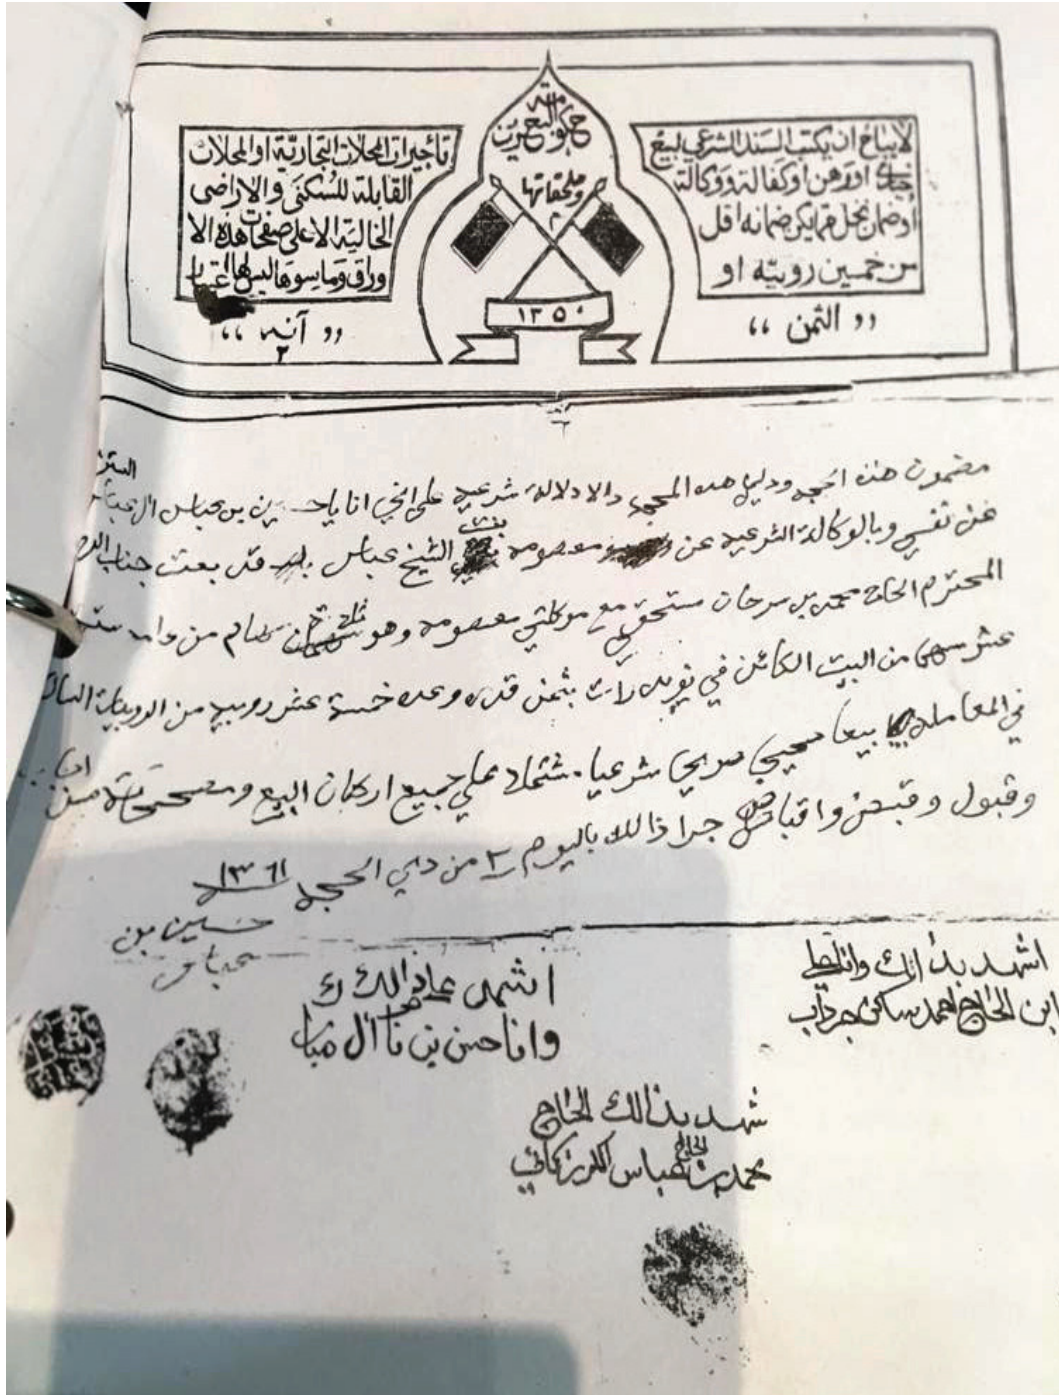 حكومة البحرين
وملحقاتها
١٣٥٠
لايباع ان يكتب السند الشرعي لبيع
خيار او رهن او كفالة ووكالة
أو ضمان نخل قم يكن ضمانه اقل
من خمسين روبيّة او
,, الثمن ,,
تأجيرات المحلات التجاريّة او المحلات
القابلة للسُكنَى والاراضى
الخالية الا على صفحات هذه الا
وراق وَماسوهاليس لها اعتبار
,, آنه ,,
٢
مضمون هذه الحجه ودليل هذه المحجه والا دلالة شرعيه على اني انا بن عباس
عن نفسي وبالوكالة الشرعيه عن معصومه بنت الشيخ عباس قد بعت جناب
المحترم الحاج محمد بن سرحان مستحقي مع موكلتي معصومه وهو ثلاثة من واحد
عشر سهى من البيت الكائن في بثمن قدره وعده خمسة عشر روبيه من الروبيات
في المعامله بيعا صحيحي صريحي شرعيا مشتملا على جميع اركان البيع ومصححاته من
وقبول وقبض واقباض جرا ذالك باليوم ٢ من ذي الحجه ١٣٦١
حسين بن
عباس
اشهد بذالك وانا علي
ابن الحاج احمد ساكن جرداب
اشهد على ذالك
وانا حسن بن
شهد بذالك الحاج
محمد بن الحاج عباس الكرزكاني